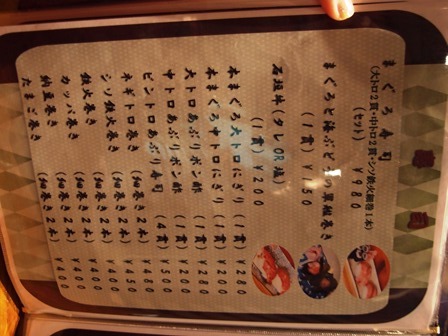 寿司
まぐろ寿司
(大トロ2貫・中トロ2貫・シソ鉄火細巻1本)
(セット) ¥980
まぐろと海ぶどうの軍艦巻き
(1貫) ¥150
石垣牛(タレOR塩)
(1貫) ¥400
本まぐろ大トロにぎり(1貫) ¥280
本まぐろ中トロにぎり(1貫) ¥200
大トロあぶりポン酢 (1貫) ¥280
中トロあぶりポン酢 (1貫) ¥200
ビントロあぶり寿司 (4貫) ¥500
ネギトロ巻き (細巻き2本) ¥480
シソ鉄火巻き (細巻き2本) ¥450
鉄火巻き (細巻き2本) ¥400
カッパ巻き (細巻き2本) ¥400
納豆巻き (細巻き2本) ¥400
たまご巻き (細巻き2本) ¥400